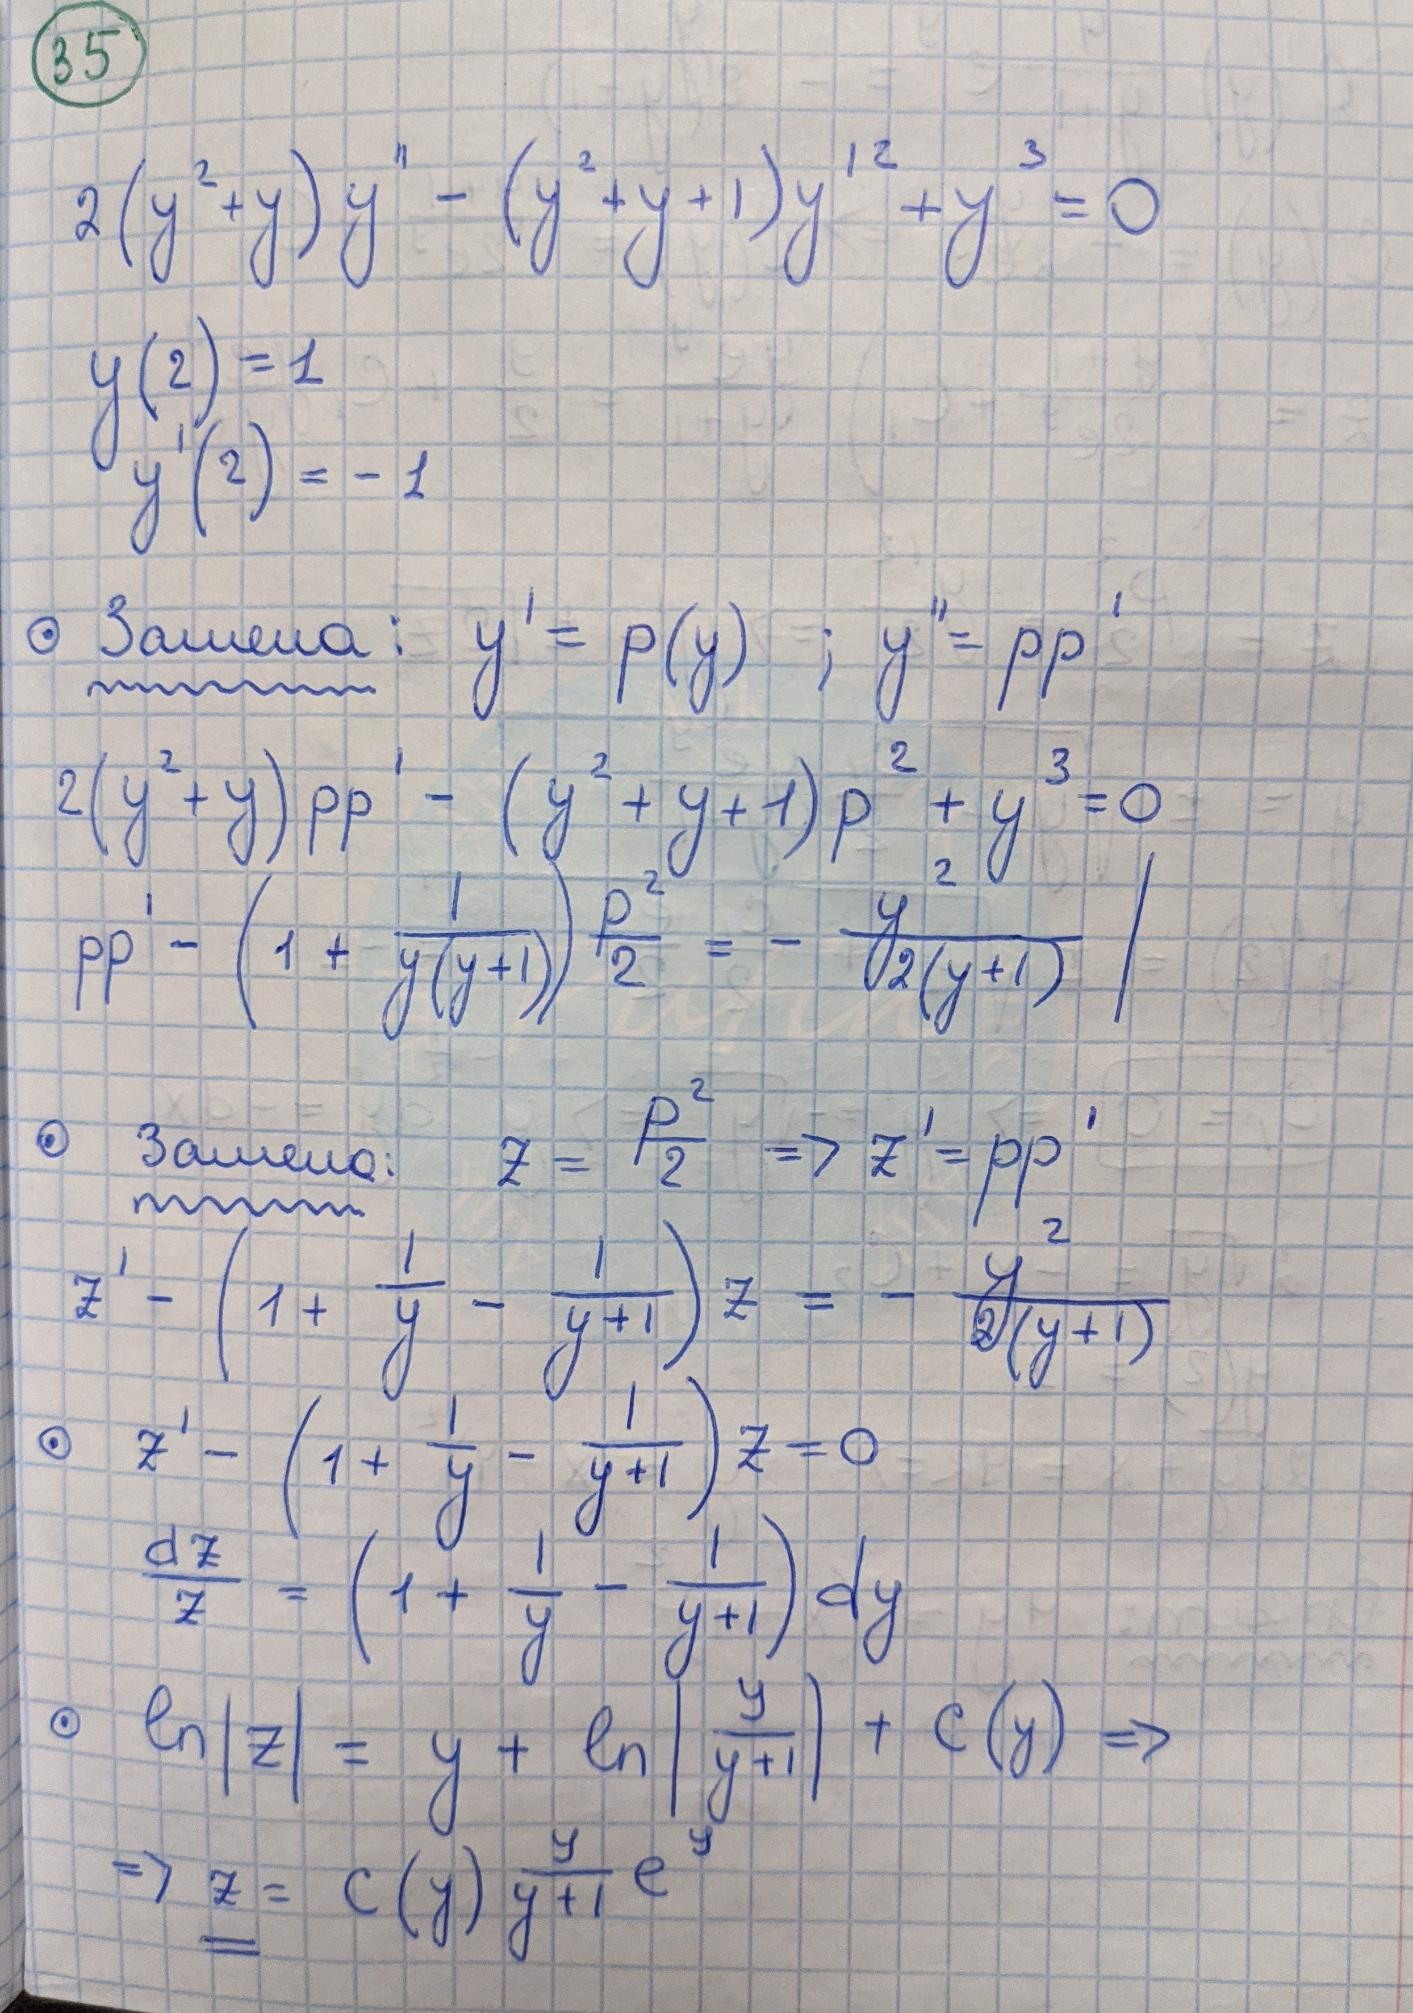 35
2(y²+y)y'' - (y²+y+1)y'² + y³ = 0
y(2) = 1
y'(2) = -1
⊙ Замена: y' = p(y) ; y'' = pp'
2(y²+y)pp' - (y²+y+1)p² + y³ = 0
pp' - (1 + 1/(y(y+1))) p²/2 = - y²/(2(y+1)) |
⊙ Замена: z = p²/2 => z' = pp'
z' - (1 + 1/y - 1/(y+1)) z = - y²/(2(y+1))
⊙ z' - (1 + 1/y - 1/(y+1)) z = 0
dz/z = (1 + 1/y - 1/(y+1)) dy
⊙ ln|z| = y + ln|y/(y+1)| + C(y) =>
=> z = C(y) y/(y+1) e^y